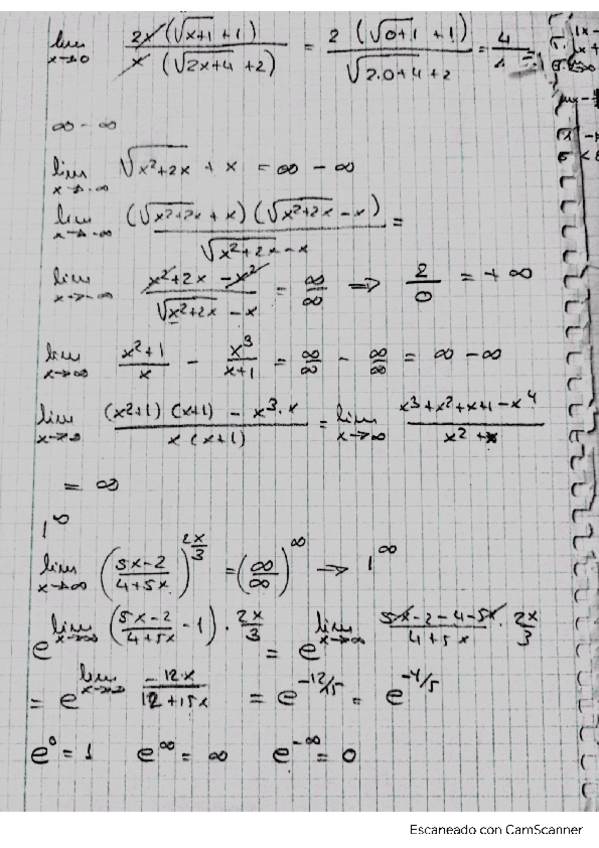 lim x→0 2x(√(x+1) + 1) / x(√(2x+4) + 2) = 2(√(0+1) + 1) / (√(2·0+4) + 2) = 4/4
∞ - ∞
lim x→-∞ √(x²+2x) + x = ∞ - ∞
lim x→-∞ (√(x²+2x) + x)(√(x²+2x) - x) / (√(x²+2x) - x) =
lim x→-∞ (x²+2x - x²) / (√(x²+2x) - x) = ∞/∞ ⇒ 2/0 = +∞
lim x→∞ (x²+1)/x - x³/(x+1) = ∞/∞ - ∞/∞ = ∞ - ∞
lim x→∞ ((x²+1)(x+1) - x³·x) / (x(x+1)) = lim x→∞ (x³+x²+x+1-x⁴) / (x²+x)
= ∞
1^∞
lim x→∞ ((5x-2)/(4+5x))^(2x/3) = (∞/∞)^∞ → 1^∞
e^(lim x→∞ ((5x-2)/(4+5x) - 1) · 2x/3) = e^(lim x→∞ (5x-2-4-5x)/(4+5x) · 2x/3)
= e^(lim x→∞ -12x/(12+15x)) = e^(-12/15) = e^(-4/5)
e⁰ = 1 e^∞ = ∞ e^(-∞) = 0
Escaneado con CamScanner